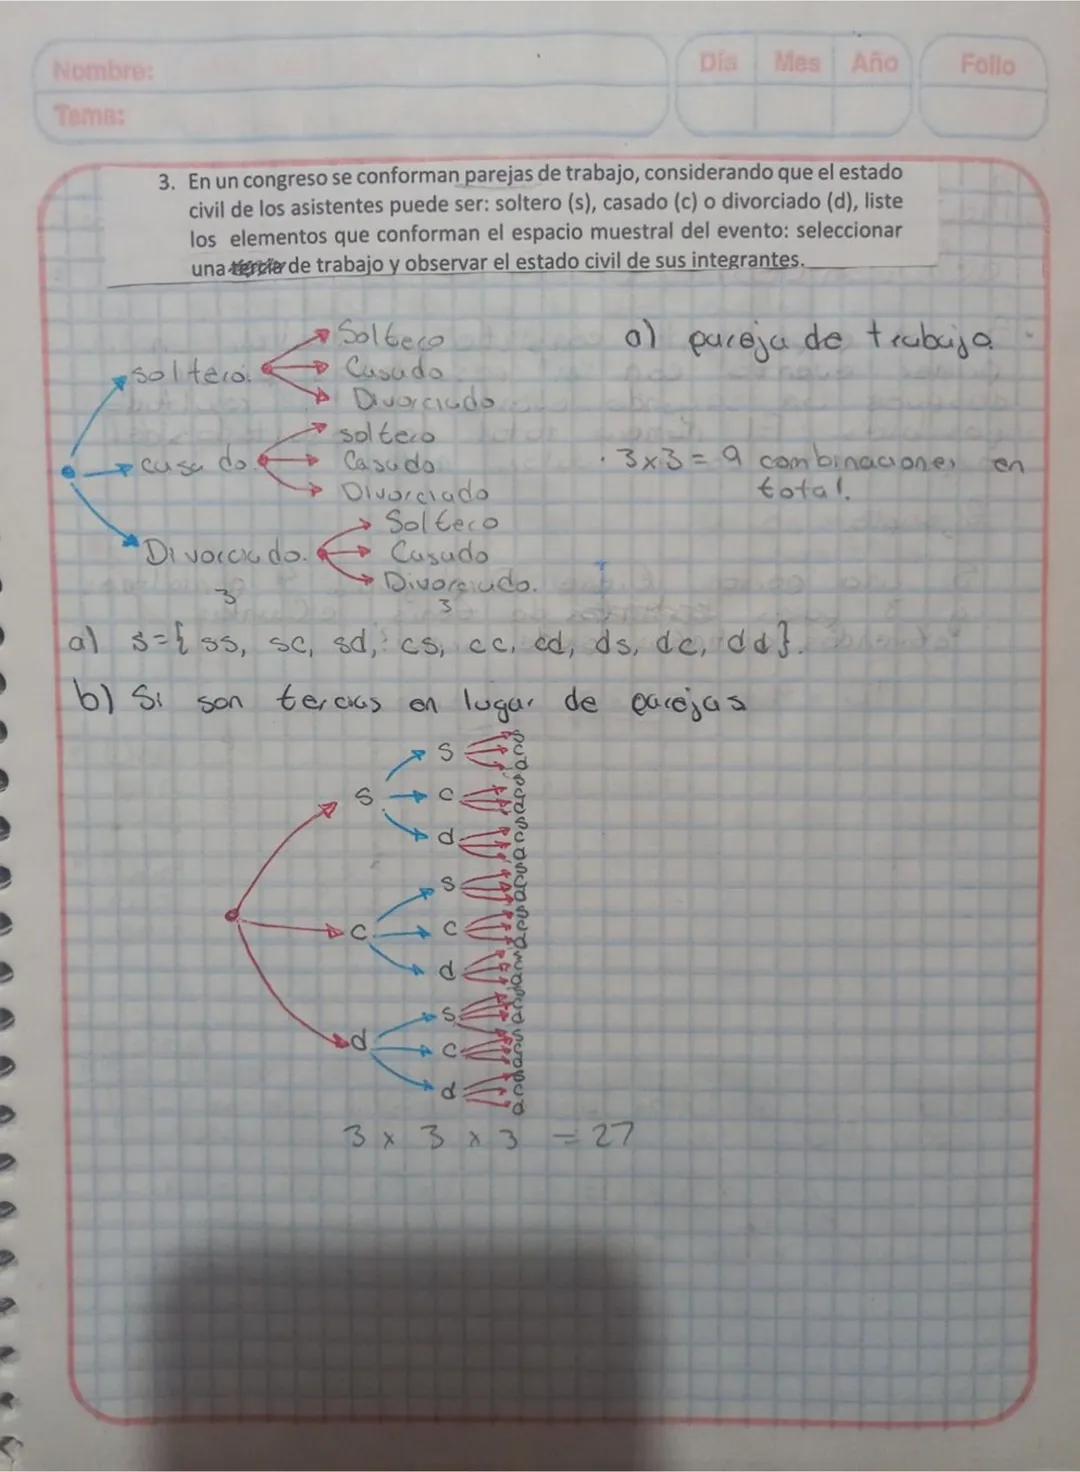 Nombre:
Día Mes Año
Folio
Tema:
3. En un congreso se conforman parejas de trabajo, considerando que el estado
civil de los asistentes puede ser: soltero (s), casado (c) o divorciado (d), liste
los elementos que conforman el espacio muestral del evento: seleccionar
una tercia de trabajo y observar el estado civil de sus integrantes.
a) pareja de trabajo
Soltero
soltero.
Casado
Divorciado
soltero
casado.
Casado
Divorciado
· 3x3 = 9 combinaciones en
total.
Soltero
Divorciado.
Casado
Divorciado.
3
3
a) s={ ss, sc, sd, cs, cc, cd, ds, dc, dd}.
b) Si son tercias en lugar de parejas
s
s
c
d
s
c
c
d
s
d
c
d
3 x 3 x 3 = 27